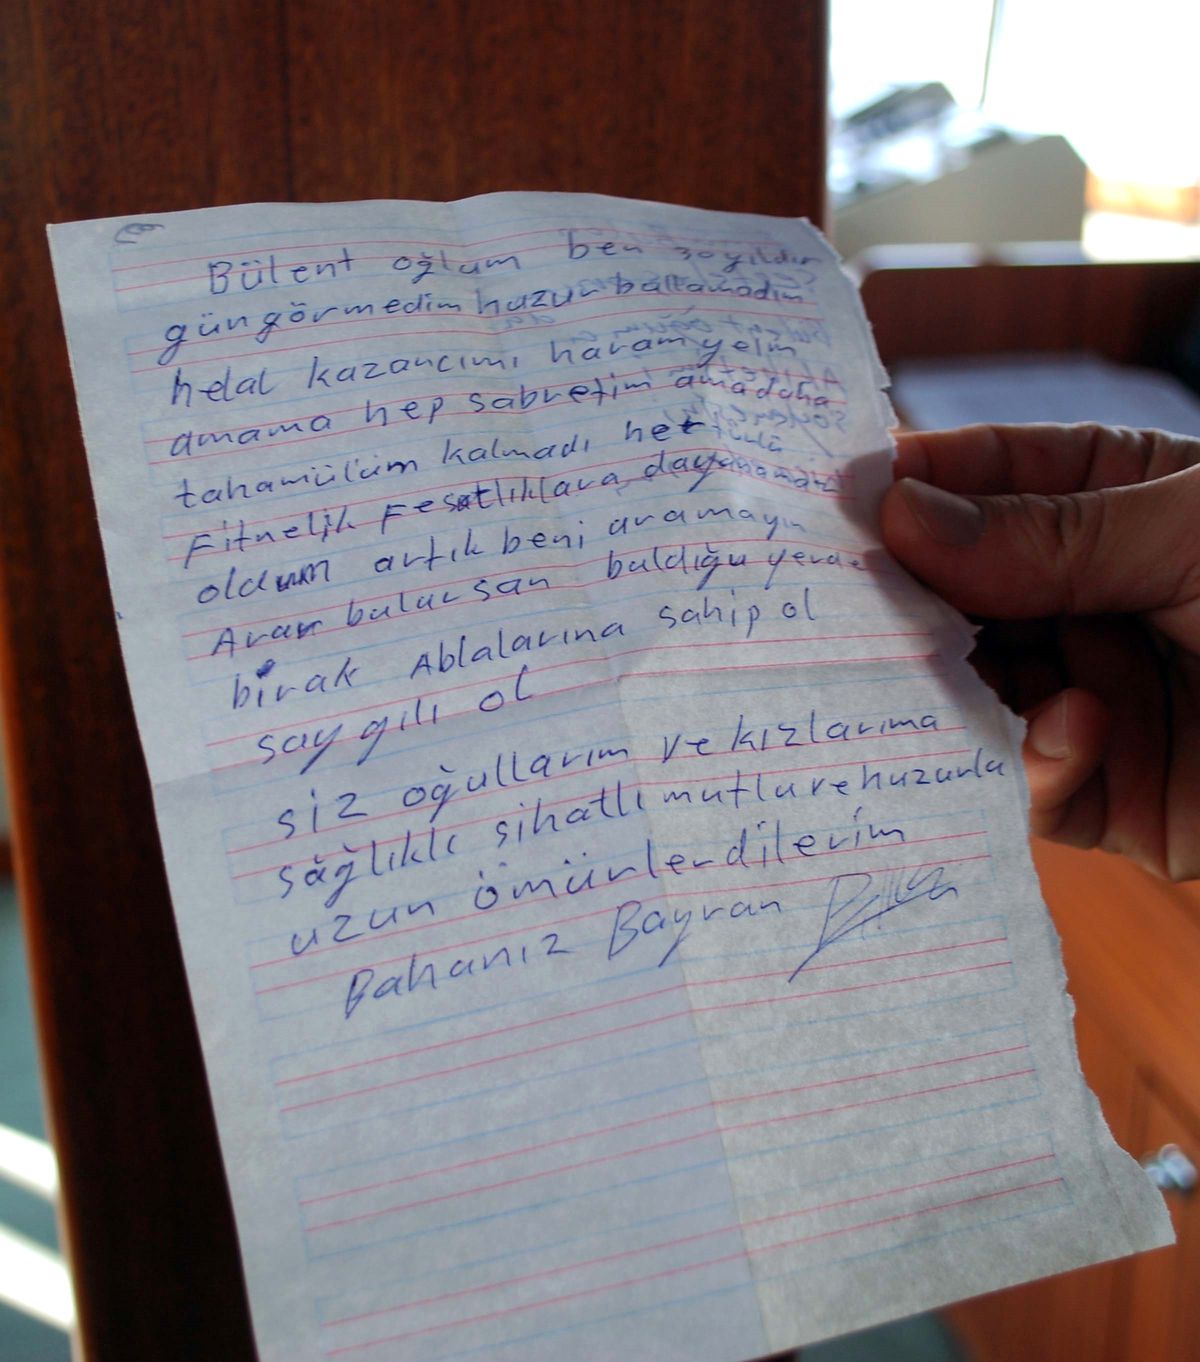 Bülent oğlum ben 30 yıldır
gün görmedim huzur bullamadım
helal kazancımı haram yelim
amama hep sabretim ama daha
tahamülüm kalmadı her türlü
Fitnelik Fesatlıklara dayanamaz
oldum artık beni aramayın
Arar bulursan bulduğu yerde
bırak Ablalarına sahip ol
saygılı ol
siz oğullarım ve kızlarıma
sağlıklı sihatlı mutlu ve huzurla
uzun ömürler dilerim
Bahanız Bayran